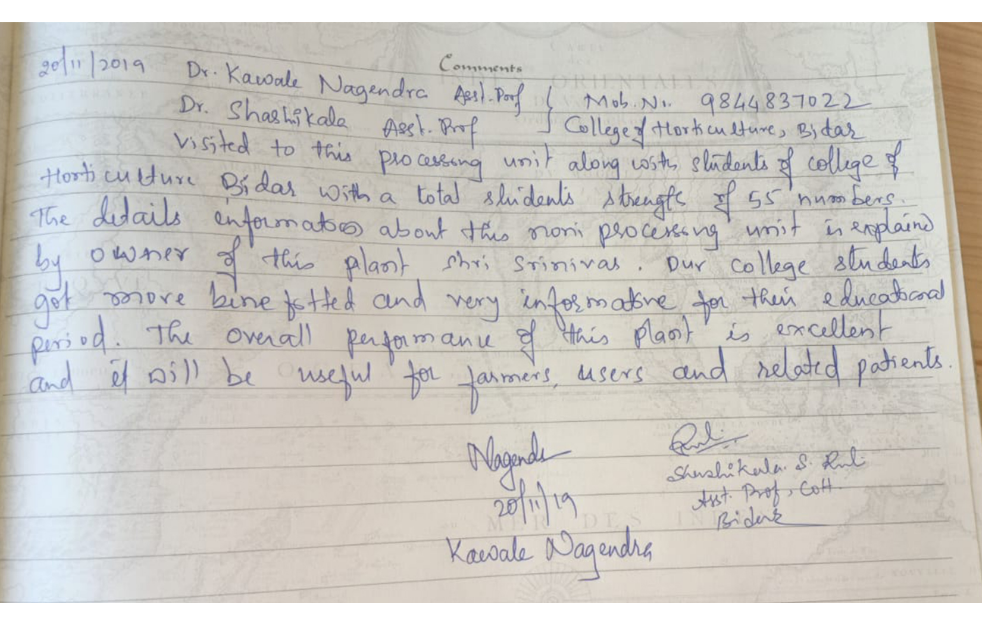 Comments
20/11/2019 Dr. Kawale Nagendra Asst. Prof } Mob. No. 9844837022
Dr. Shashikala Asst. Prof } College of Horticulture, Bidar
visited to this processing unit along with students of college of
Horticulture Bidar with a total students strength of 55 numbers.
The details information about this noni processing unit is explained
by owner of this plant shri srinivas. Our college students
got more binefitted and very informative for their educational
period. The overall performance of this plant is excellent
and it will be useful for farmers, users and related patients.
Nagendr
20/11/19
Kawale Nagendra
Shashikala. S.
Asst. Prof, COH
Bidar